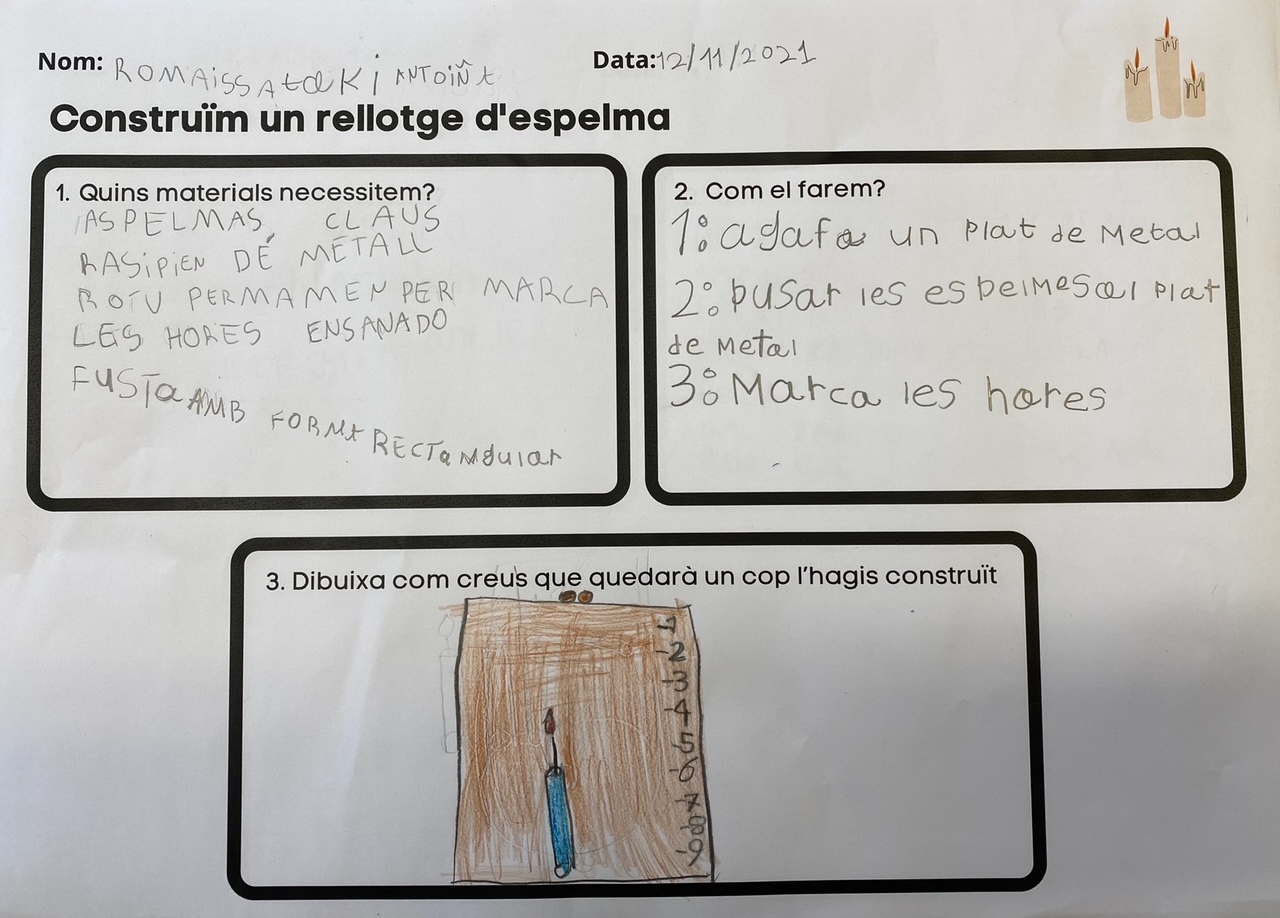 Nom: ROMAISSA taki ANTOIÑA
Data: 12/11/2021
Construïm un rellotge d'espelma
1. Quins materials necessitem?
ASPELMAS, CLAUS
RASIPIEN DE METALL
ROTU PERMAMEN PER MARCA
LES HORES ENSANADO
FUSTa AMB FORMA RECTaNgular
2. Com el farem?
1: agafa un plat de Metal
2: pusar les espelmes al plat
de Metal
3: Marca les hores
3. Dibuixa com creus que quedarà un cop l'hagis construït
1
-2
-3
-4
-5
-6
-7
-8
-9